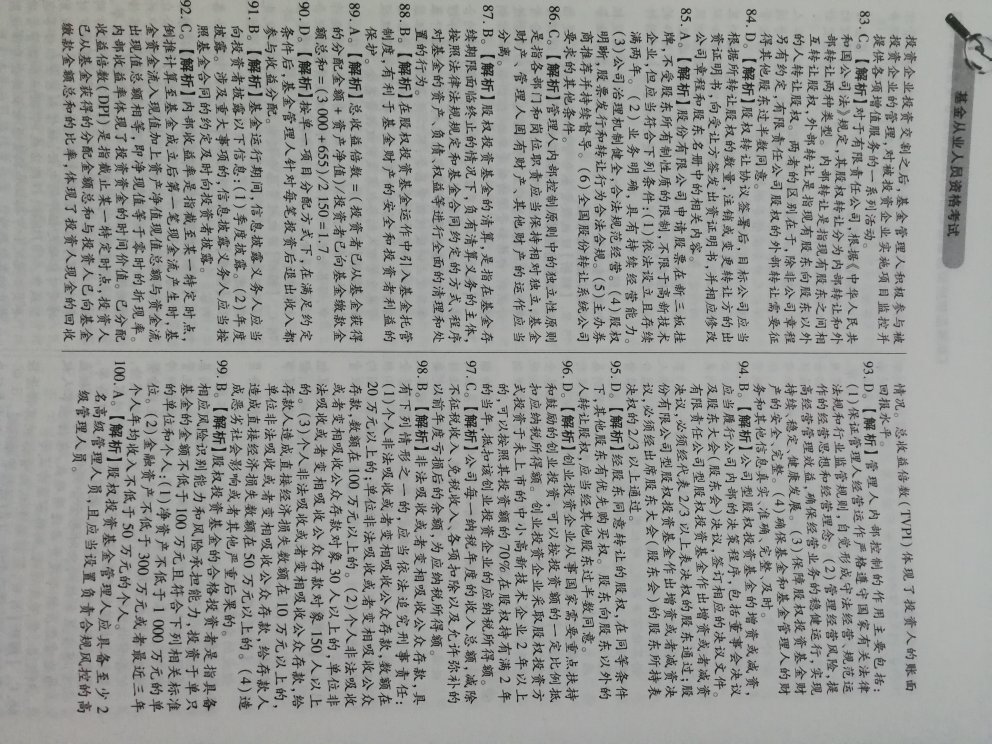 基金从业人员资格考试
投资企业投资交割之后，基金管理人积极参与被
投资企业的管理，对被投资企业实施项目监控并
提供各项增值服务的一系列活动。
83. C。【解析】对于有限责任公司，根据《中华人民共
和国公司法》规定，其股权转让分为内部转让和外
部转让两种类型。内部转让是指现有股东之间相
互转让股权，外部转让是指现有股东向股东以外
的人转让股权。两者的区别在于，除非公司章程
另有约定，有限责任公司股权的外部转让需要征
得其他股东过半数同意。
84. D。【解析】股权转让协议签署后，目标公司应当
根据所转让股权的数量，注销或变更转让方的出
资证明书，向受让方签发出资证明书，并相应修改
公司章程和股东名册中的相关内容。
85. A。【解析】股份有限公司申请股票在新三板挂
牌，不受股东所有制性质的限制，不限于高新技术
企业，但应当符合下列条件：(1)依法设立且存续
满两年。(2)业务明确，具有持续经营能力。
(3)公司治理机制健全，合法规范经营。(4)股权
明晰，股票发行和转让行为合法合规。(5)主办券
商推荐并持续督导。(6)全国股份转让系统公司
要求的其他条件。
86. C。【解析】管理人内部控制原则中的独立性原则
是指各部门和岗位职责应当保持相对独立，基金
财产、管理人固有财产、其他财产的运作应当
分离。
87. B。【解析】股权投资基金的清算，是指在基金存
续期限面临终止的情况下，负有清算义务的主体，
按照法律法规规定和基金合同约定的方式、程序
对基金的资产、负债、权益等进行全面的清理和处
置的行为。
88. B。【解析】在股权投资基金运作中引入基金托管
制度，有利于基金财产的安全和投资者利益的
保护。
89. A。【解析】总收益倍数＝(投资者已从基金获得
的分配金额＋资产净值)/投资者已向基金缴款金
额总和＝(3 000＋655)/2 150＝1.7。
90. D。【解析】按照单一项目分配方式下，在满足约定
条件后，基金管理人针对每笔投资后退出收入都
参与收益分配。
91. B。【解析】基金运行期间，信息披露义务人应当
向投资者披露以下信息：(1)季度披露。(2)年度
披露。涉及重大事项的，信息披露义务人应当按
照基金合同的约定及时向投资者披露。
92. C。【解析】内部收益率是指截至某一特定时点，
倒推计算至基金成立后第一笔现金流产生时，基
金资金流入现值加上资产净值现值总额与资金流
出现值总额相等，即净现值等于零时的折现率。
内部收益率体现了投资资金的时间价值。已分配
收益倍数(DPI)是指截止某一特定时点，投资人
已从基金获得的分配金额总和与投资人已向基金
缴款金额总和的比率，体现了投资人现金的回收
情况。总收益倍数(TVPI)体现了投资人的账面
回报水平。
93. D。【解析】管理人内部控制的作用主要包括：
(1)保证管理人经营运作严格遵守国家有关法律
法规和行业监管规则，自觉形成守法经营、规范运
作的经营思想和经营理念。(2)防范经营风险，提
高经营管理效益，确保经营业务的稳健运行，实现
持续、稳定、健康发展。(3)保障股权投资基金财
产的安全、完整。(4)确保基金和基金管理人的财
务和其他信息真实、准确、完整、及时。
94. B。【解析】公司型股权投资基金的增资或减资，
应当履行公司内部的决策程序，包括董事会决议
及股东大会(股东会)决议，签订相应的决议文件。
有限责任公司型股权投资基金作出增资或者减资
决议，必须经代表 2/3 以上表决权的股东通过；股
份有限公司型股权投资基金作出增资或者减资决
议，必须经出席股东大会(股东会)的股东所持表
决权的 2/3 以上通过。
95. D。【解析】经股东同意转让的股权，在同等条件
下，其他股东有优先购买权。股东向股东以外的
人转让股权，应当经其他股东过半数同意。
96. D。【解析】创业投资企业从事国家需要重点扶持
和鼓励的创业投资，可以按投资额的一定比例抵
扣应纳税所得额。创业投资企业采取股权投资方
式投资于未上市的中小高新技术企业 2 年以上
的，可以按照其投资额的 70%在股权持有满 2 年
的当年，抵扣该创业投资企业的应纳税所得额。
97. C。【解析】公司每一纳税年度的收入总额，减除
不征税收入、免税收入、各项扣除以及允许弥补的
以前年度亏损后的余额，为应纳税所得额。
98. B。【解析】非法吸收或者变相吸收公众存款，具
有下列情形之一的，应当依法追究刑事责任：
(1)个人非法吸收或者变相吸收公众存款，数额在
20 万元以上的；单位非法吸收或者变相吸收公众
存款，数额在 100 万元以上的。(2)个人非法吸收
或者变相吸收公众存款对象 30 人以上的，单位非
法吸收或者变相吸收公众存款对象 150 人以上
的。(3)个人非法吸收或者变相吸收公众存款，给
存款人造成直接经济损失数额在 10 万元以上的，
单位非法吸收或者变相吸收公众存款，给存款人
造成直接经济损失数额在 50 万元以上的。(4)造
成恶劣社会影响或者其他严重后果的。
99. B。【解析】股权投资基金的合格投资者是指具备
相应风险识别能力和风险承担能力，投资于单只
基金的金额不低于 100 万元且符合下列相关标准
的单位和个人：(1)净资产不低于 1 000 万元的单
位。(2)金融资产不低于 300 万元或者最近三年
个人年均收入不低于 50 万元的个人。
100. A。【解析】股权投资基金管理人应具备至少 2
名高级管理人员，且应当设置负责合规风控的高
级管理人员。